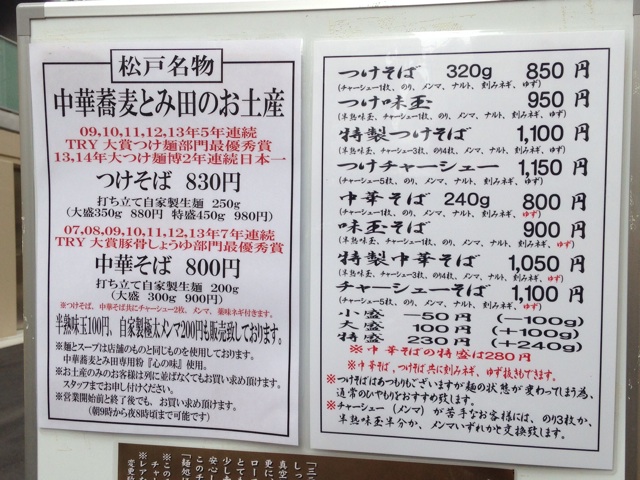 松戸名物
中華蕎麦とみ田のお土産
09,10,11,12,13年5年連続
TRY 大賞つけ麺部門最優秀賞
13,14年大つけ麺博2年連続日本一
つけそば 830円
打ち立て自家製生麺 250g
(大盛350g 880円 特盛450g 980円)
07,08,09,10,11,12,13年7年連続
TRY 大賞豚骨しょうゆ部門最優秀賞
中華そば 800円
打ち立て自家製生麺 200g
(大盛 300g 900円)
※つけそば、中華そば共にチャーシュー2枚、メンマ、薬味ネギ付きます。
半熟味玉100円、自家製極太メンマ200円も販売致しております。
※麺とスープは店舗のものと同じものを使用しております。
中華蕎麦とみ田専用粉『心の味』使用。
※お土産のみのお客様は列に並ばなくてもお買い求め頂けます。
スタッフまでお申し付けください。
※営業開始前と終了後でも、お買い求め頂けます。
(朝9時から夜8時頃まで可能です)
つけそば 320g 850円
(チャーシュー1枚、のり、メンマ、ナルト、刻みネギ、ゆず)
つけ味玉 950円
(半熟味玉、チャーシュー1枚、のり、メンマ、ナルト、刻みネギ、ゆず)
特製つけそば 1,100円
(半熟味玉、チャーシュー3枚、のり4枚、メンマ、ナルト、刻みネギ、ゆず)
つけチャーシュー 1,150円
(チャーシュー5枚、のり、メンマ、ナルト、刻みネギ、ゆず)
中華そば 240g 800円
(チャーシュー1枚、のり、メンマ、ナルト、刻みネギ、ゆず)
味玉そば 900円
(半熟味玉、チャーシュー1枚、のり、メンマ、ナルト、刻みネギ、ゆず)
特製中華そば 1,050円
(半熟味玉、チャーシュー3枚、のり4枚、メンマ、ナルト、刻みネギ、ゆず)
チャーシューそば 1,100円
(チャーシュー5枚、のり、メンマ、ナルト、刻みネギ、ゆず)
小盛 50円 (－100g)
大盛 100円 (＋100g)
特盛 230円 (＋240g)
※中華そばの特盛は280円
※中華そば、つけそば共に刻みネギ、ゆず抜きできます。
※つけそばはあつもりもございますが麺の状態が変わってしまう為、
通常のひやもりをおすすめ致します。
※チャーシュー(メンマ)が苦手なお客様には、のり3枚か、
半熟味玉半分か、メンマいずれかと交換致します。